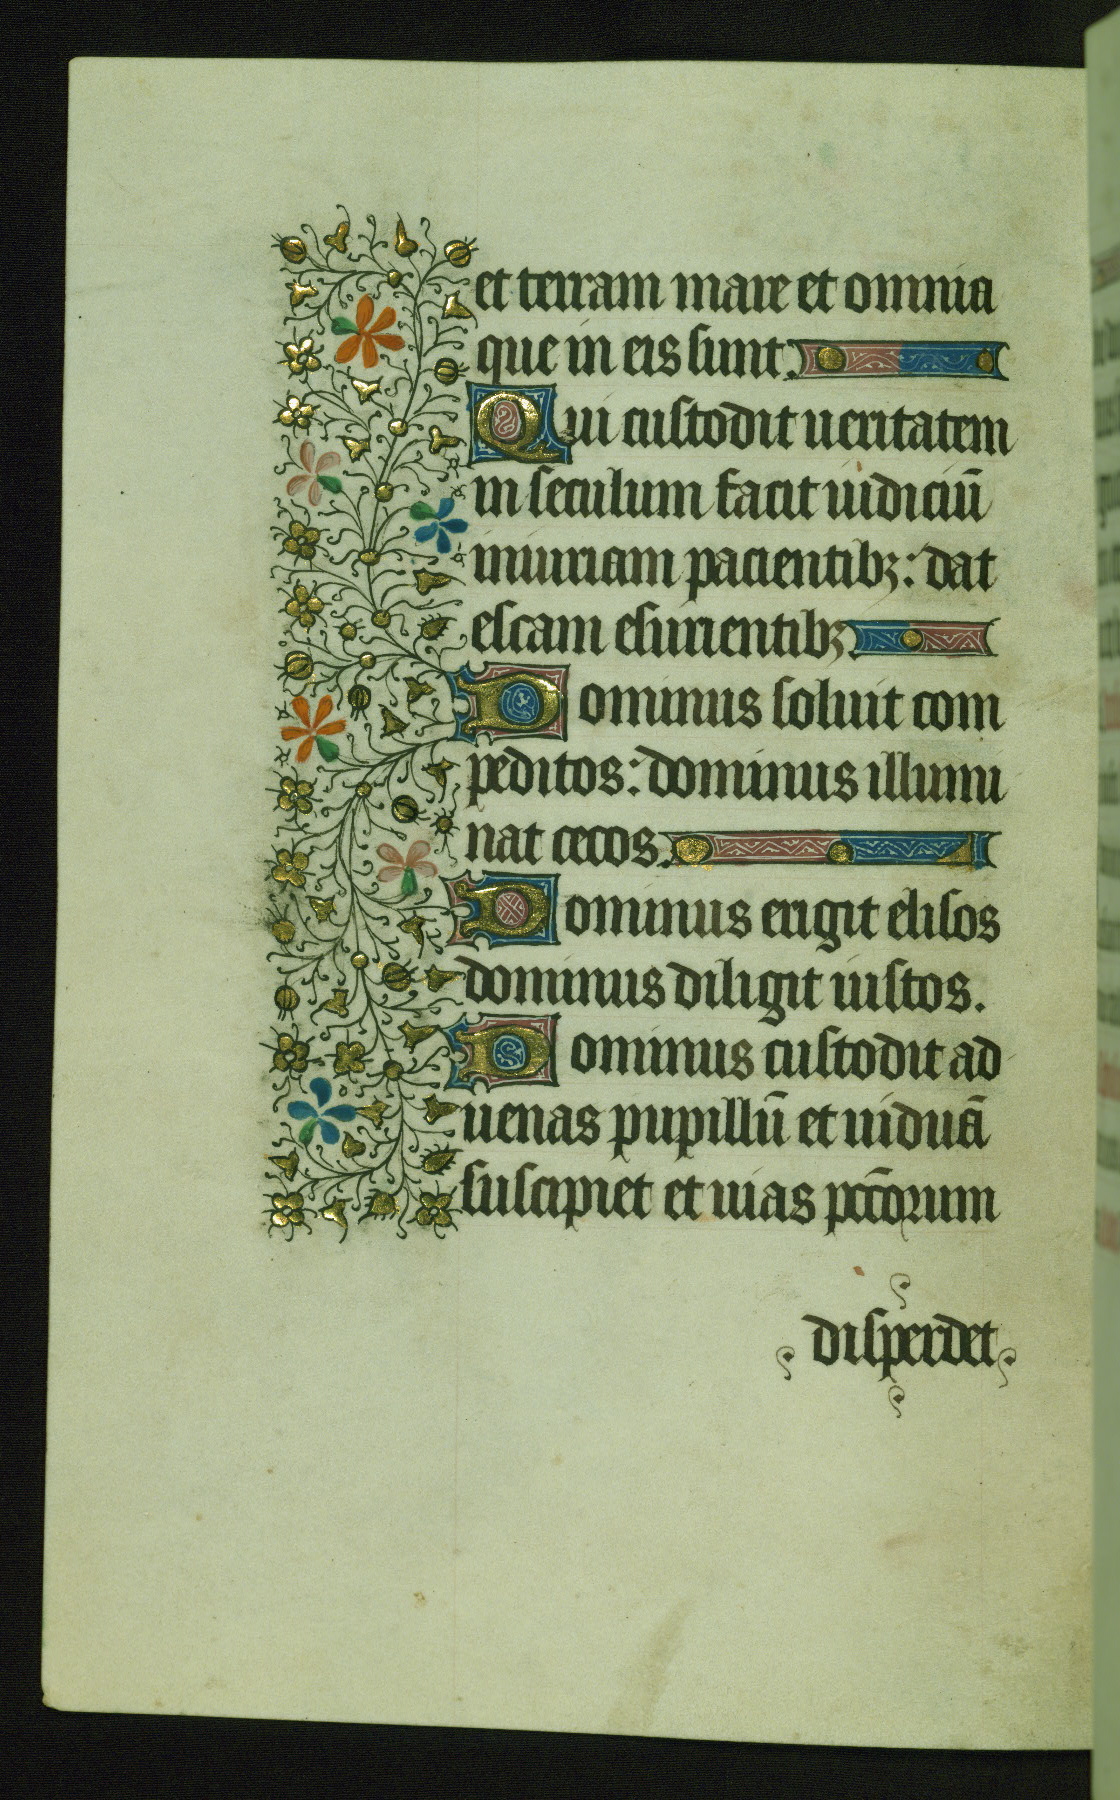 et terram mare et omnia
que in eis sunt.
Qui custodit ueritatem
in seculum facit iudiciū
iniuriam pacientibꝫ: dat
escam esurientibꝫ.
Dominus soluit com
peditos: dominus illumi
nat cecos.
Dominus erigit elisos
dominus diligit iustos.
Dominus custodit ad
uenas pupillū et uiduā
suscipiet et uias pcc̄orum
disperdet